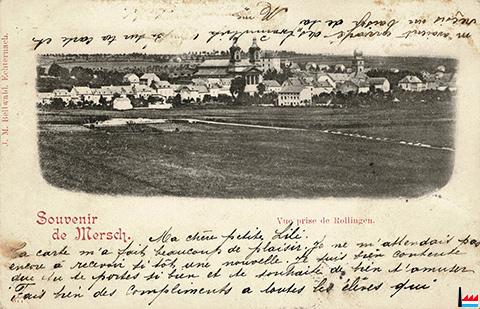 J. M. Bellwald, Echternach.
Souvenir
de Mersch.
Vue prise de Rollingen.
Ma chère petite Lili.
Ta carte m'a fait beaucoup de plaisir. Je ne m'attendais pas
encore à recevoir si tôt une nouvelle. Je suis bien contente
que tu te portes si bien et te souhaite de bien t'amuser
Fais bien des compliments à toutes les élèves qui